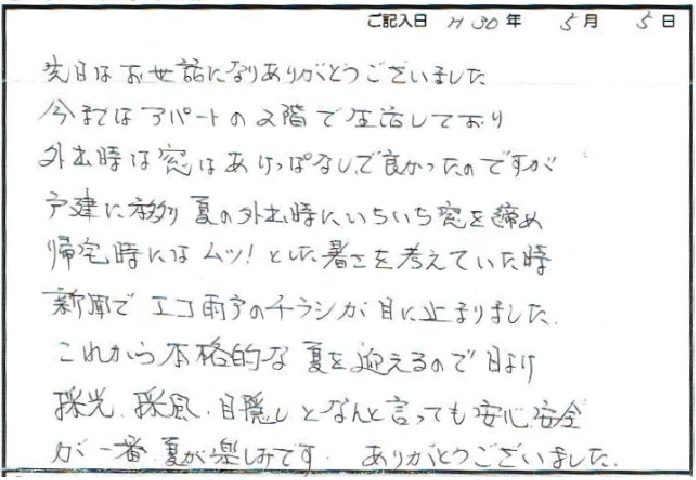 ご記入日 H30年 5月 5日
先日はお世話になりありがとうございました
今まではアパートの2階で生活しており
外出時は窓はあけっぱなしで良かったのですが
戸建に移り夏の外出時にいちいち窓を締め
帰宅時にはムッ!とした暑さを考えていた時
新聞でエコ雨戸のチラシが目に止まりました.
これから本格的な夏を迎えるので日よけ
採光、採風、目隠しとなんと言っても安心安全
が一番 夏が楽しみです. ありがとうございました.